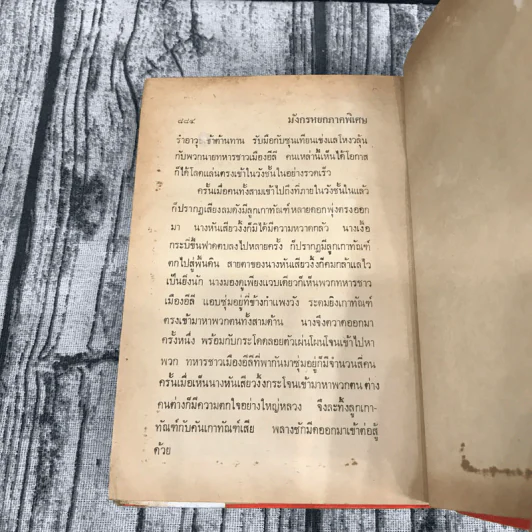 ๘๘๔ มังกรหยกภาคพิเศษ
รำอาวุธ เข้าต้านทาน รับมือกับชุนเทียนเซ่งแลโหงวลุ้น
กับพวกนายทหารชาวเมืองอีลี คนเหล่านี้เห็นได้โอกาส
ก็ได้โลดแล่นตรงเข้าในวังชั้นในอย่างรวดเร็ว
ครั้นเมื่อคนทั้งสามเข้าไปถึงที่ภายในวังชั้นในแล้ว
ก็ปรากฏเสียงลมดังมีลูกเกาทัณฑ์หลายดอกพุ่งตรงออก
มา นางหันเสียวงั้งก็มิได้มีความหวาดกลัว นางเงื้อ
กระบี่ขึ้นฟาดตบลงไปหลายครั้ง ก็ปรากฏมีลูกเกาทัณฑ์
ตกไปสู่พื้นดิน สายตาของนางหันเสียวงั้งก็คมกล้าแลไว
เป็นยิ่งนัก นางมองดูเพียงแวบเดียวก็เห็นพวกทหารชาว
เมืองอีลี แอบซุ่มอยู่ที่ข้างกำแพงวัง ระดมยิงเกาทัณฑ์
ตรงเข้ามาหาพวกตนทั้งสามด้าน นางจึงตวาดออกมา
ครั้งหนึ่ง พร้อมกับกระโดดลอยตัวเผ่นโผนโจนเข้าไปหา
พวก ทหารชาวเมืองอีลีที่พากันมาซุ่มอยู่ก็มีจำนวนสี่คน
ครั้นเมื่อเห็นนางหันเสียวงั้งกระโจนเข้ามาหาพวกตน ต่าง
คนต่างก็มีความตกใจอย่างใหญ่หลวง จึงละทิ้งลูกเกา-
ทัณฑ์กับคันเกาทัณฑ์เสีย พลางชักมีดออกมาเข้าต่อสู้
ด้วย